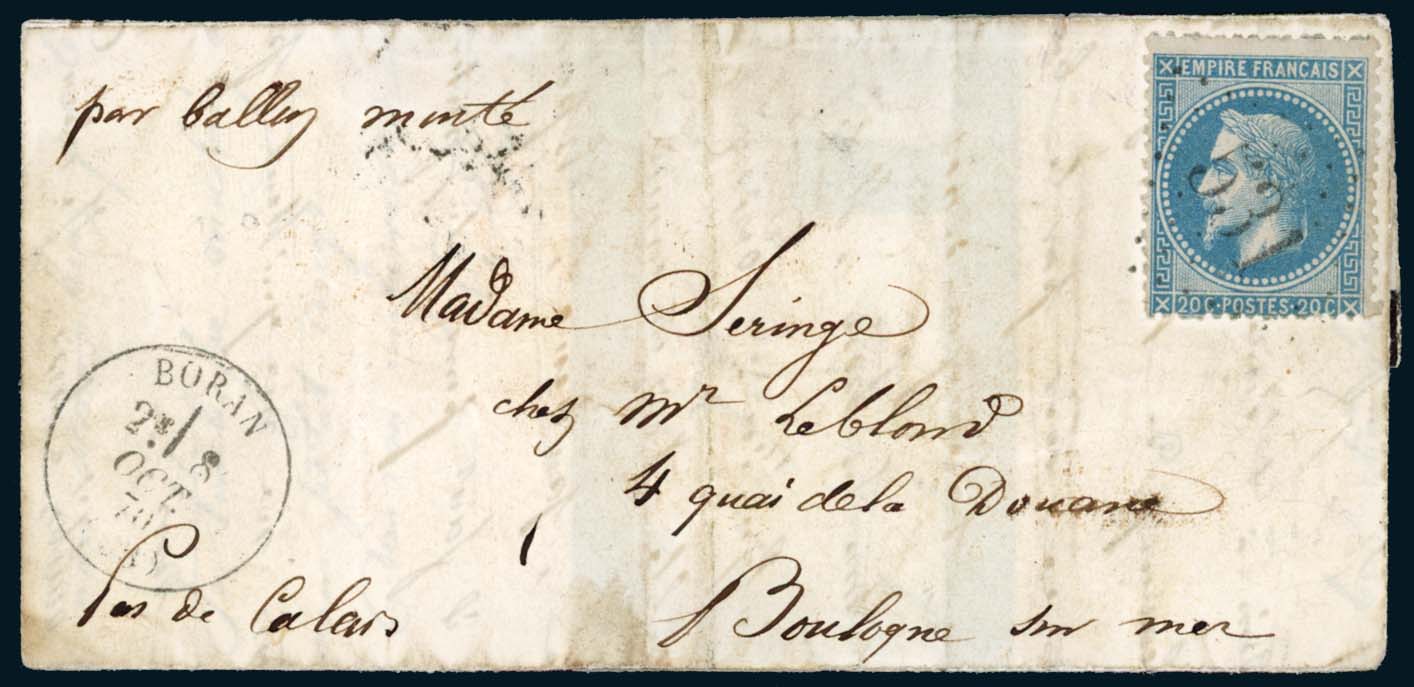 par ballon monté
EMPIRE FRANCAIS
531
20 C · POSTES · 20 C
Madame Seringe
chez Mr Leblond
4 quai de la Douane
Boulogne sur mer
Pas de Calais
BORAN
2e/ 8
OCT.
70